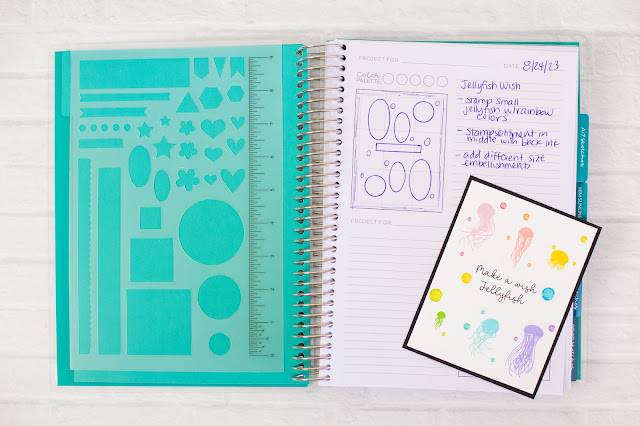 PROJECT FOR:
DATE: 8/24/23
Color
PALETTE:
Jellyfish Wish
- Stamp small
jellyfish w/rainbow
colors
- Stamp sentiment in
middle with black ink
- add different size
embellishments
PROJECT FOR:
Make a wish
Jellyfish